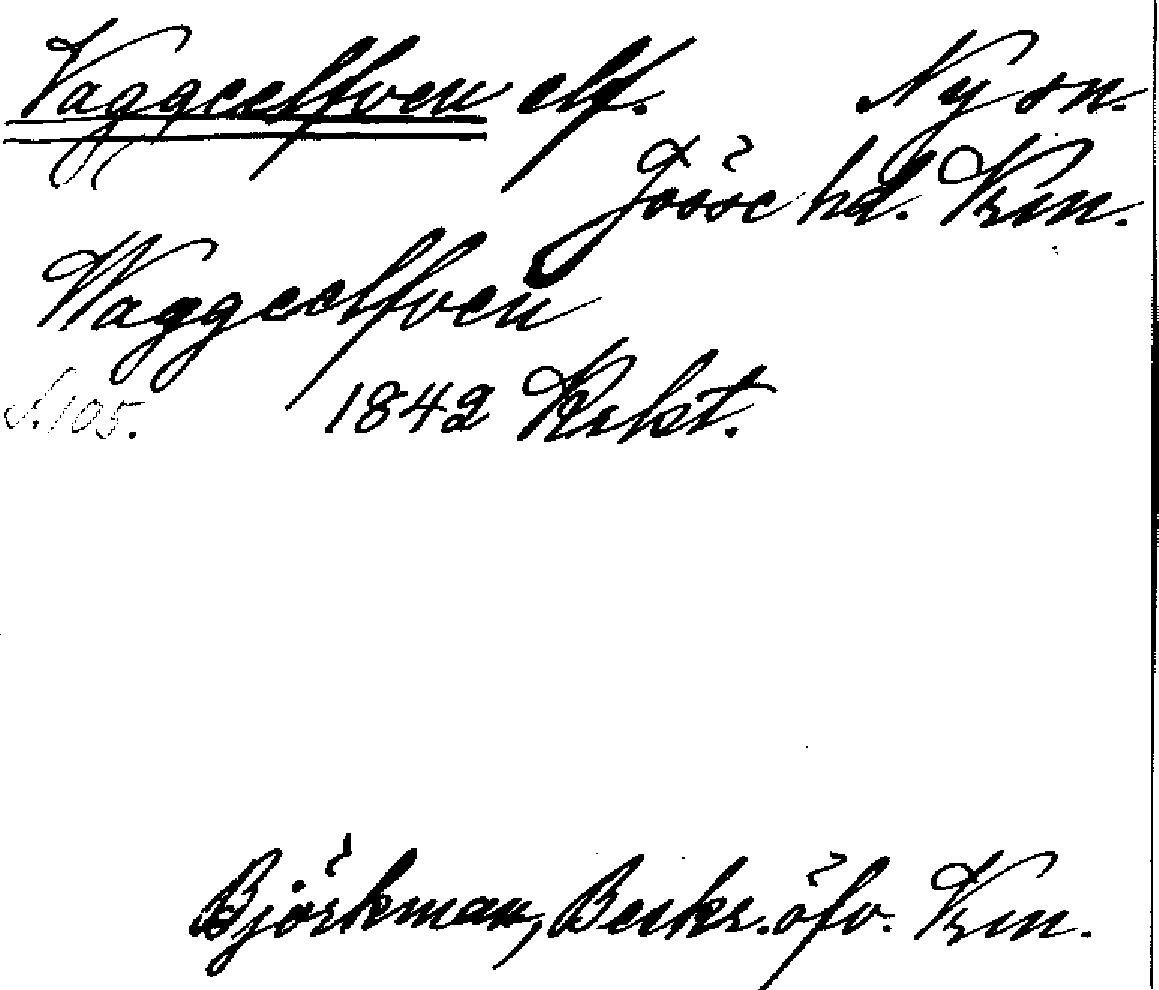 Vaggeelfven elf. Ny sn.
Jösse hd. Vrm.
Waggeelfven
S. 105. 1842 Rekst.
Björkman, Beskr. öfv. Vrm.